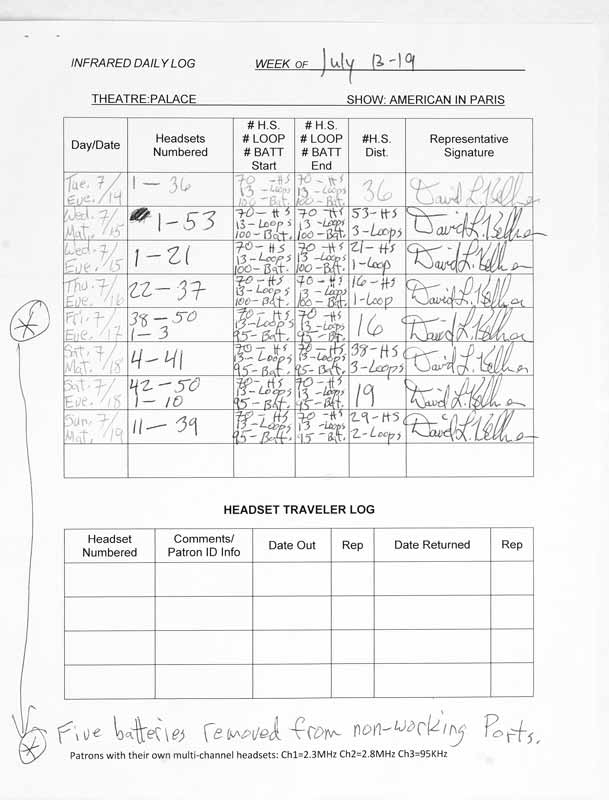 INFRARED DAILY LOG WEEK OF July 13-19
THEATRE:PALACE SHOW: AMERICAN IN PARIS
Day/Date Headsets Numbered # H.S. # LOOP # BATT Start # H.S. # LOOP # BATT End #H.S. Dist. Representative Signature
Tue. 7/14 Eve. 1-36 70-HS 13-Loops 100-Bat. 70-HS 13-Loops 100-Bat. 36 David L. Kelleher
Wed. 7/15 Mat. 1-53 70-HS 13-Loops 100-Bat. 70-HS 13-Loops 100-Bat. 53-HS 3-Loops David L. Kelleher
Wed. 7/15 Eve. 1-21 70-HS 13-Loops 100-Bat. 70-HS 13-Loops 100-Bat. 21-HS 1-Loop David L. Kelleher
Thu. 7/16 Eve. 22-37 70-HS 13-Loops 100-Bat. 70-HS 13-Loops 100-Bat. 16-HS 1-Loop David L. Kelleher
Fri. 7/17 Eve. 38-50 1-3 70-HS 13-Loops 95-Bat. 70-HS 13-Loops 95-Bt. 16 David L. Kelleher
Sat. 7/18 Mat. 4-41 70-HS 13-Loops 95-Bat. 70-HS 13-Loops 95-Bat. 38-HS 3-Loops David L. Kelleher
Sat. 7/18 Eve. 42-50 1-10 70-HS 13-Loops 95-Bat. 70-HS 13-Loops 95-Bat. 19 David L. Kelleher
Sun. 7/19 Mat. 11-39 70-HS 13-Loops 95-Batt. 70-HS 13-Loops 95-Bat. 29-HS 2-Loops David L. Kelleher
HEADSET TRAVELER LOG
Headset Numbered Comments/ Patron ID Info Date Out Rep Date Returned Rep
* Five batteries removed from non-working Ports.
Patrons with their own multi-channel headsets: Ch1=2.3MHz Ch2=2.8MHz Ch3=95KHz